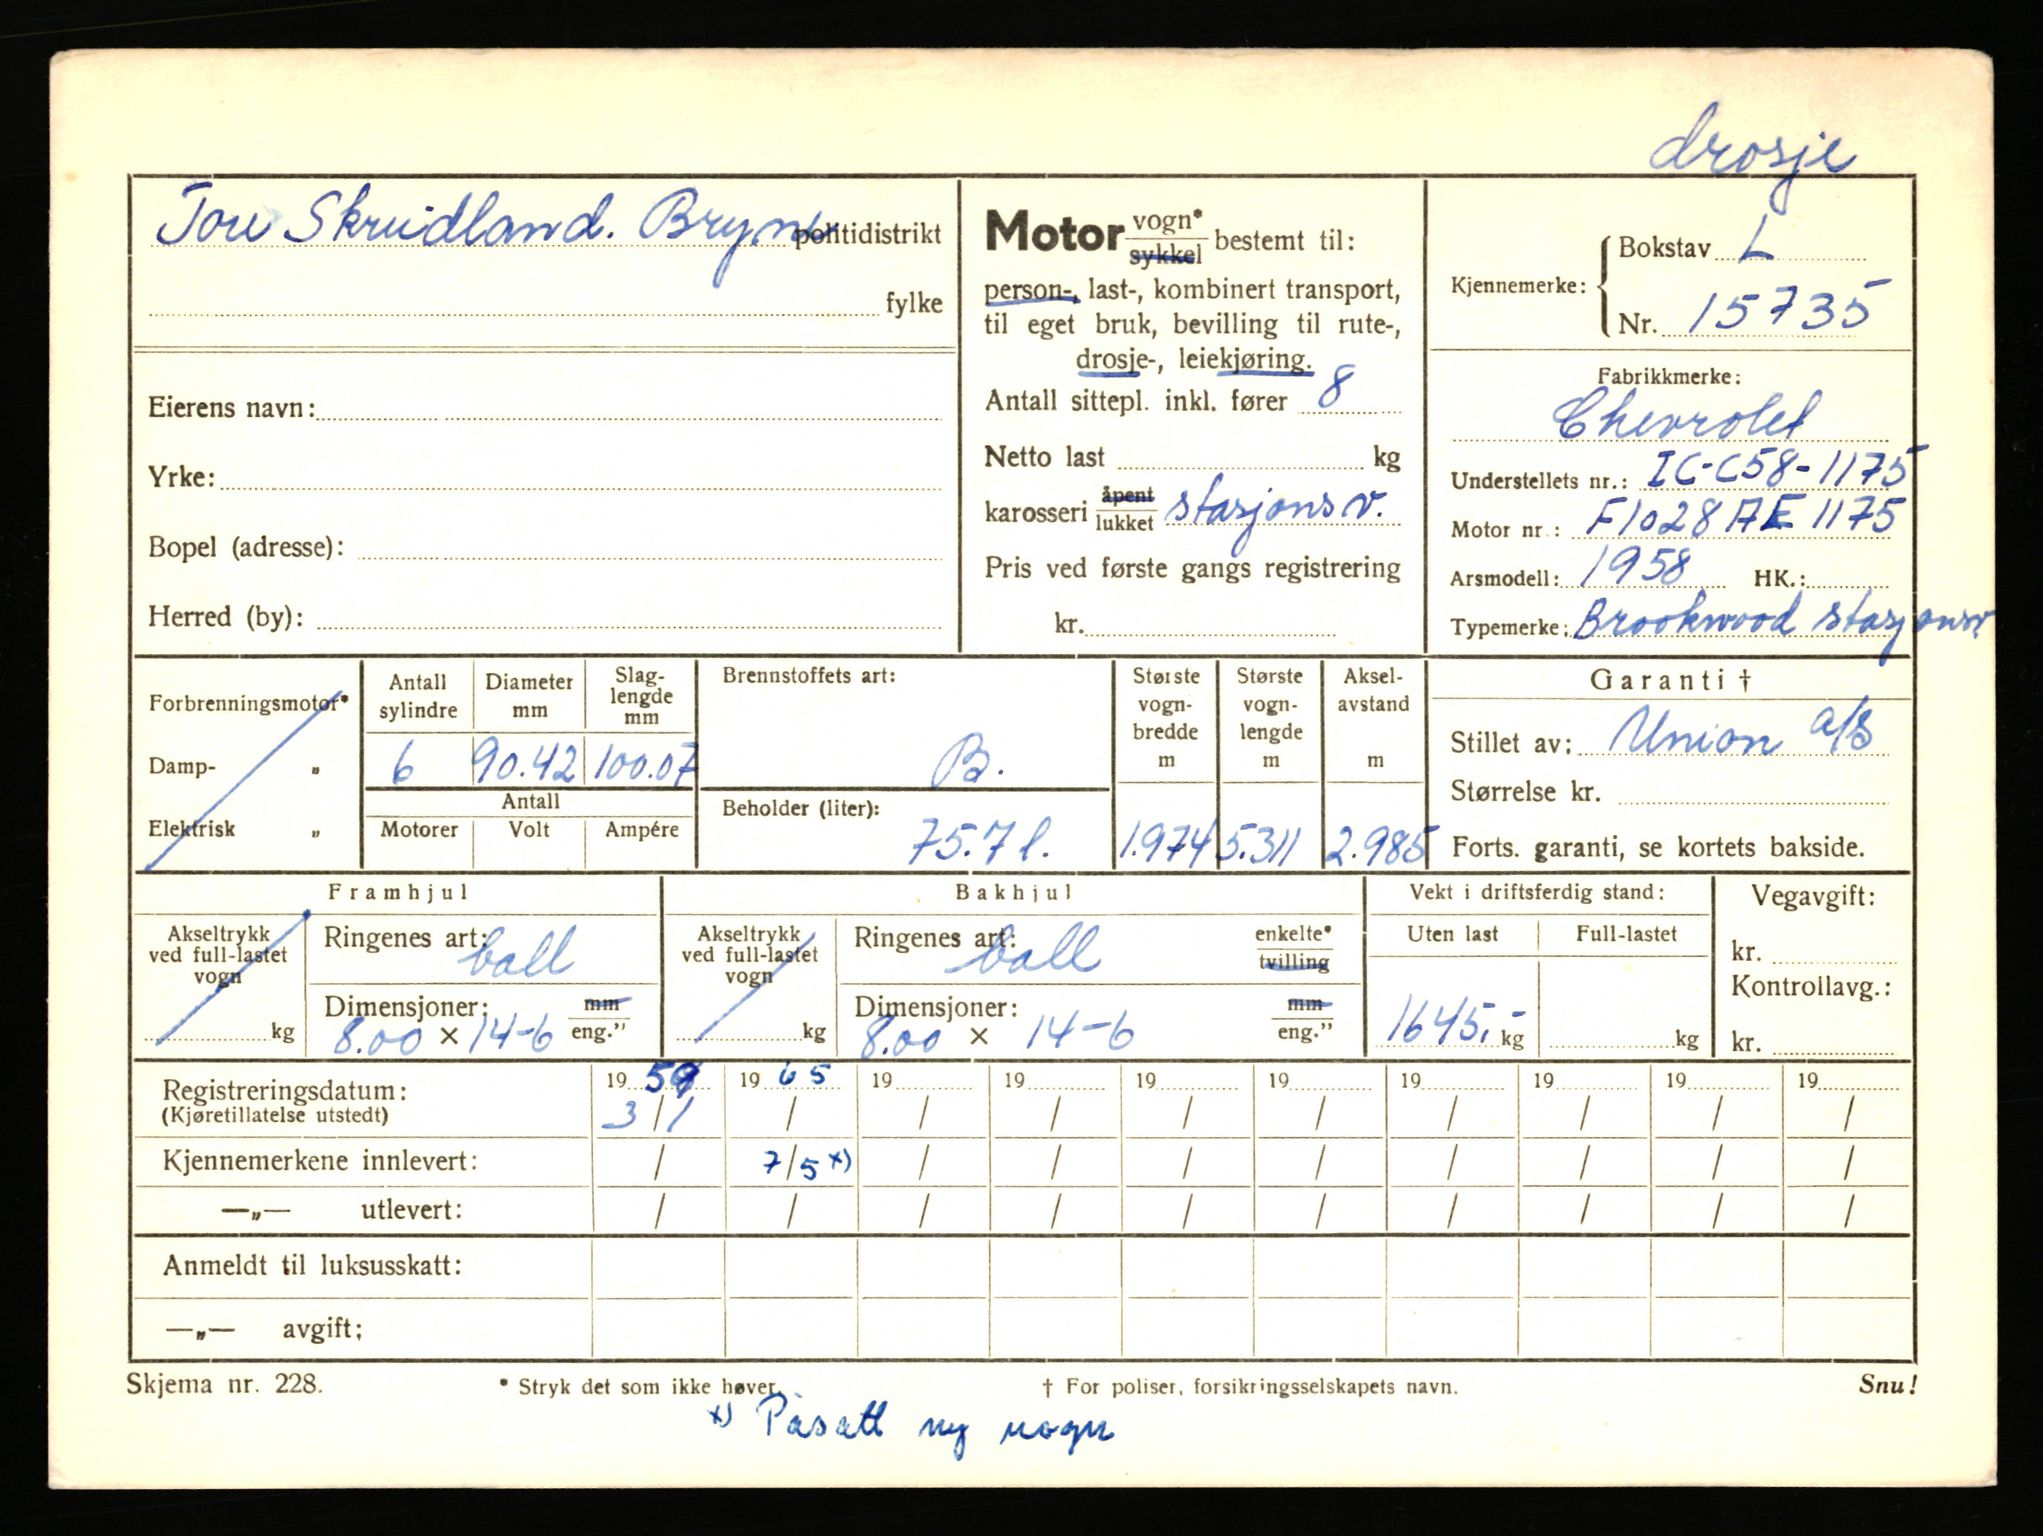 drosje
Tore Skrudland. Bryne politidistrikt
fylke
Eierens navn:
Yrke:
Bopel (adresse):
Herred (by):
Motor vogn* sykkel bestemt til:
person-, last-, kombinert transport,
til eget bruk, bevilling til rute-,
drosje-, leiekjøring.
Antall sittepl. inkl. fører 8
Netto last kg
karosseri åpent lukket stasjonsv.
Pris ved første gangs registrering
kr.
Kjennemerke: Bokstav L
Nr. 15735
Fabrikkmerke:
Chevrolet
Understellets nr.: IC-C58-1175
Motor nr.: F1028AE1175
Arsmodell: 1958 HK.:
Typemerke: Brookwood stasjonsv.
Forbrenningsmotor*
Damp- „
Elektrisk „
Antall sylindre Diameter mm Slag-lengde mm
6 90.42 100.07
Antall
Motorer Volt Ampére
Brennstoffets art:
B.
Beholder (liter):
75.7 l.
Største vogn-bredde m
1.974
Største vogn-lengde m
5.311
Aksel-avstand m
2.985
Garanti †
Stillet av: Union a/s
Størrelse kr.
Forts. garanti, se kortets bakside.
Framhjul
Akseltrykk ved full-lastet vogn
kg
Ringenes art: ball
Dimensjoner: mm
8.00 × 14-6 eng."
Bakhjul
Akseltrykk ved full-lastet vogn
kg
Ringenes art: ball enkelte* tvilling
Dimensjoner: mm
8.00 × 14-6 eng."
Vekt i driftsferdig stand:
Uten last Full-lastet
1645,- kg kg
Vegavgift:
kr.
Kontrollavg.:
kr.
Registreringsdatum: 19 59 19 65 19 19 19 19 19 19 19 19
(Kjøretillatelse utstedt) 3/1 / / / / / / / / /
Kjennemerkene innlevert: / 7/5 x) / / / / / / / /
—„— utlevert: / / / / / / / / / /
Anmeldt til luksusskatt:
—„— avgift;
Skjema nr. 228. * Stryk det som ikke høver. † For poliser, forsikringsselskapets navn. Snu!
x) Påsatt ny vogn